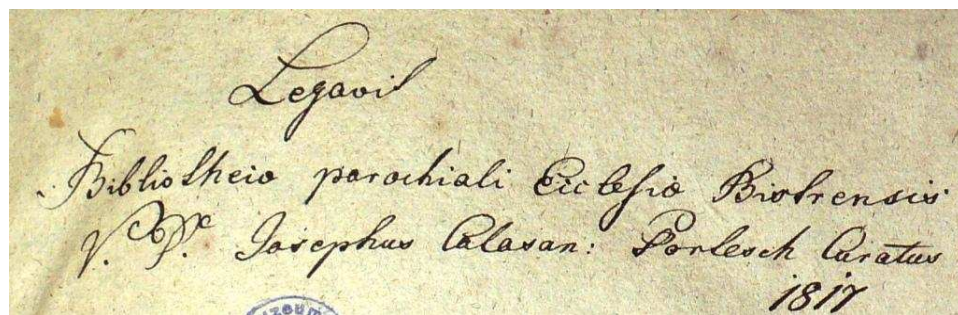 Legavit
Bibliothecæ parochiali Ecclesiæ Bistrensis
Josephus Calasan: Porlesch Curatus
1817